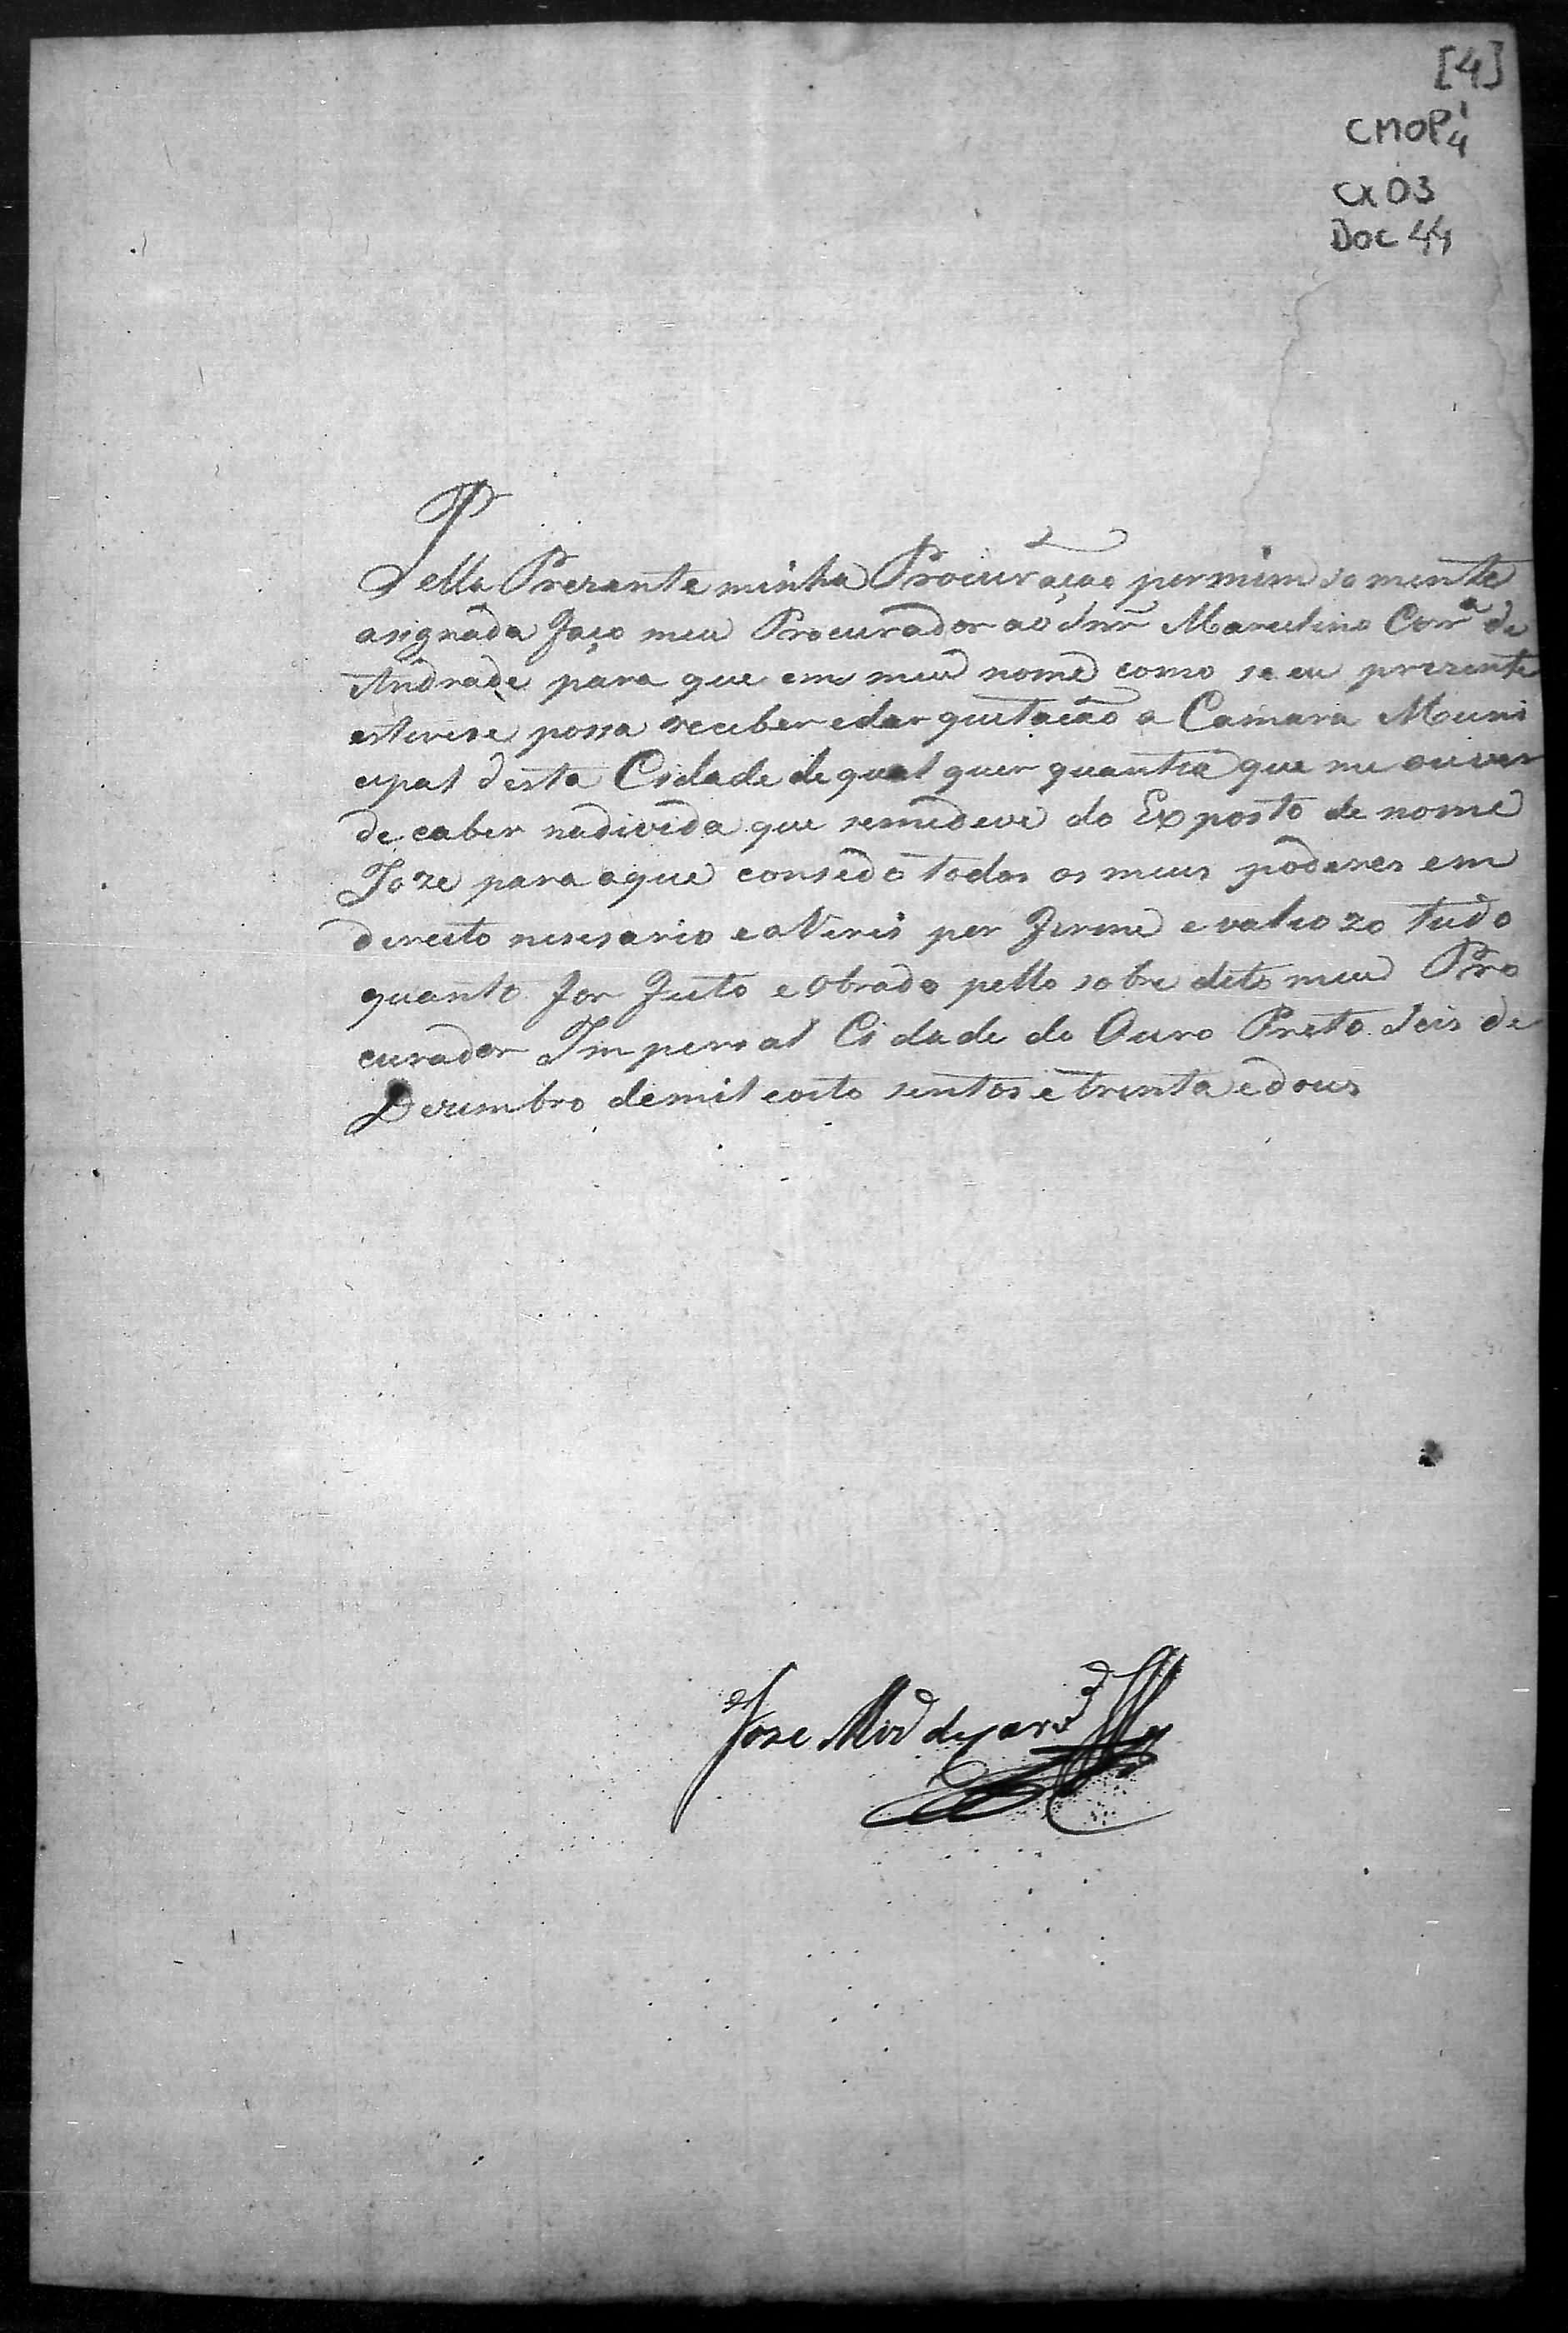 [4]
CMOP 1/4
Cx 03
Doc 44
Pella Prezente minha Procuração permim somente
asignada faço meu Procurador ao Snr Marcelino Corr.a de
Andrade para que em meu nome como se eu prezente
estivese possa receber edar quitação a Camara Muni
cipal desta Cidade de qual quer quantia que me ouver
de caber nadivida que semedeve do Exposto de nome
Joze para aque consedo todos os meus poderes em
direito nesesario e averei por firme e valiozo tudo
quanto for feito e obrado pello sobre dito meu Pro
curador Imperial Cidade do Ouro Preto seis de
Dezembro demil eoito sentos e trinta edous
Joze